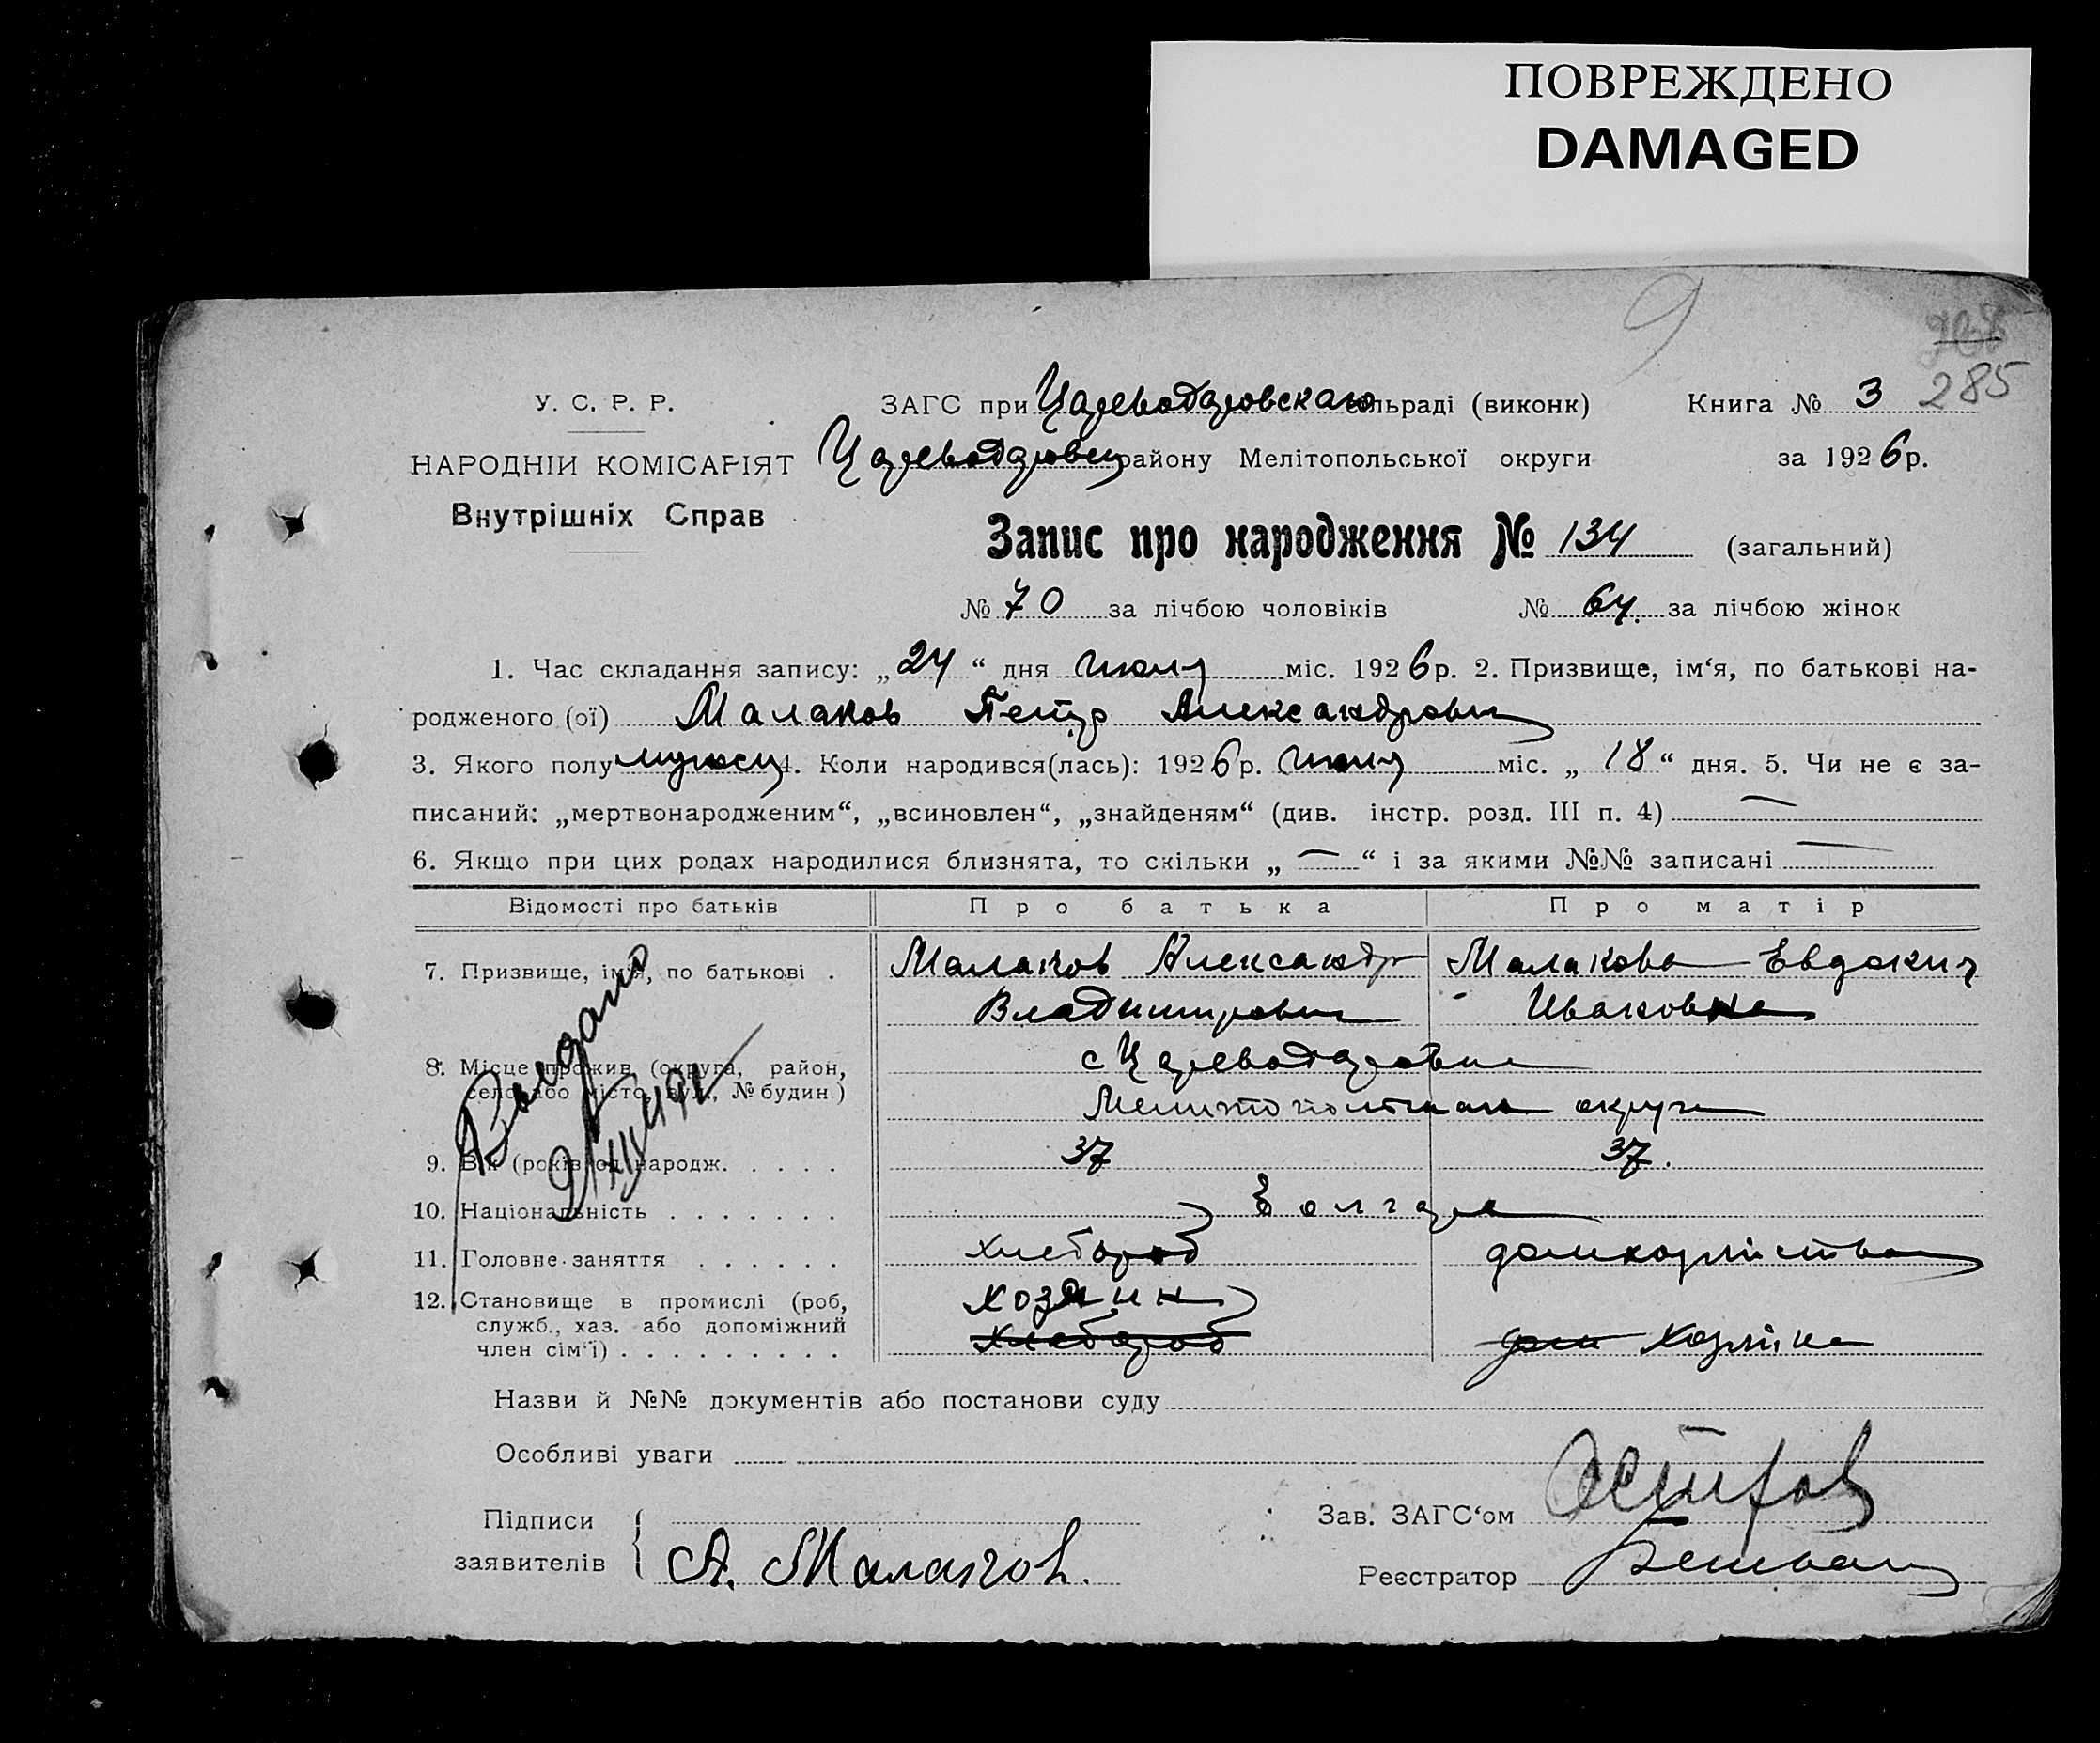 ПОВРЕЖДЕНО
DAMAGED
9
285
У. С. Р. Р.
ЗАГС при Цареводаровском сільраді (виконк)
Книга № 3
НАРОДНІЙ КОМІСАРІЯТ
Цареводаровск району Мелітопольської округи
за 1926 р.
Внутрішніх Справ
Запис про народження № 134 (загальний)
№ 70 за лічбою чоловіків № 64. за лічбою жінок
1. Час складання запису: „24“ дня июля міс. 1926 р. 2. Призвище, ім‘я, по батькові на-
родженого (ої) Малаков Петр Александрович
3. Якого полу мужск 4. Коли народився(лась): 1926 р. июля міс. „18“ дня. 5. Чи не є за-
писаний: „мертвонародженим“, „всиновлен“, „знайденям“ (див. інстр. розд. III п. 4) —
6. Якщо при цих родах народилися близнята, то скільки „—“ і за якими №№ записані —
Відомості про батьків Про батька Про матір
7. Призвище, ім‘я, по батькові . Малаков Александр Малакова Евдокия
Владимирович Ивановна
8. Місце прожив. (округа, район, с Цареводаровка
село або місто, вул., № будин.) Мелитопольской округи
9. Вік (років) од народж. . . . . 37 37.
10. Національність . . . . . . . Болгаре
11. Головне заняття . . . . . . Хлебороб домхозяйства
12. Становище в промислі (роб, хозяин
служб., хаз. або допоміжний хлебороб дом хозяйка
член сім‘ї) . . . . . . . . .
Выдано
Назви й №№ документів або постанови суду
Особливі уваги
Підписи
заявителів
А. Малаков.
Зав. ЗАГС‘ом
Реєстратор